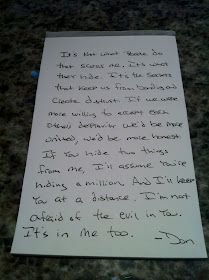 It's Not what People do
that scares me, It's what
they hide. It's the secrets
that keep us from bonding and
create distrust. If we were
more willing to accept each
others depravity we'd be more
united, we'd be more honest.
If You hide two things
from me, I'll assume You're
hiding a million. And I'll keep
You at a distance. I'm not
afraid of the evil in You.
It's in me too. -Dan